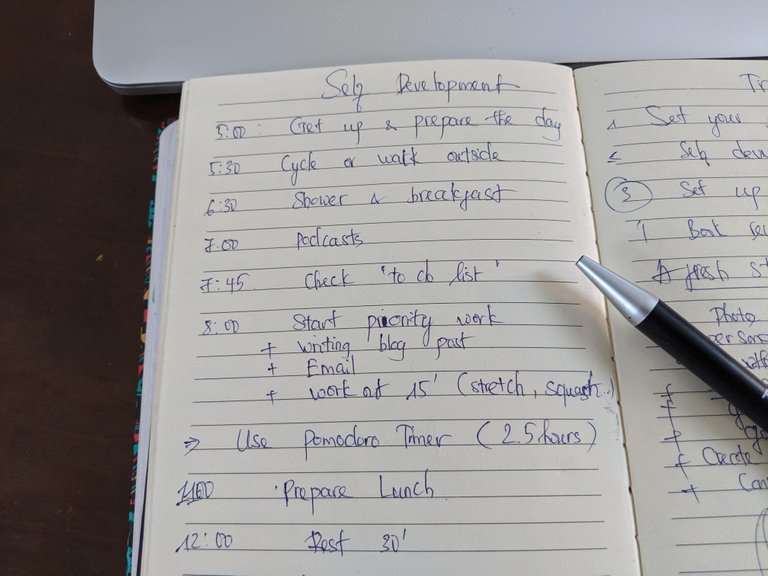 Self Development
5:00: Get up & prepare the day
5:30 Cycle or walk outside
6:30 Shower & breakfast
7:00 Podcasts
7:45 Check 'to do list'
8:00 Start priority work
+ writing blog post
+ Email
+ work out 15' (stretch, squash.)
=> Use Pomodoro Timer (2.5 hours)
1100 Prepare Lunch
12:00 Rest 30'
Set your
Self
3 Set up
Photo
+ Create
+